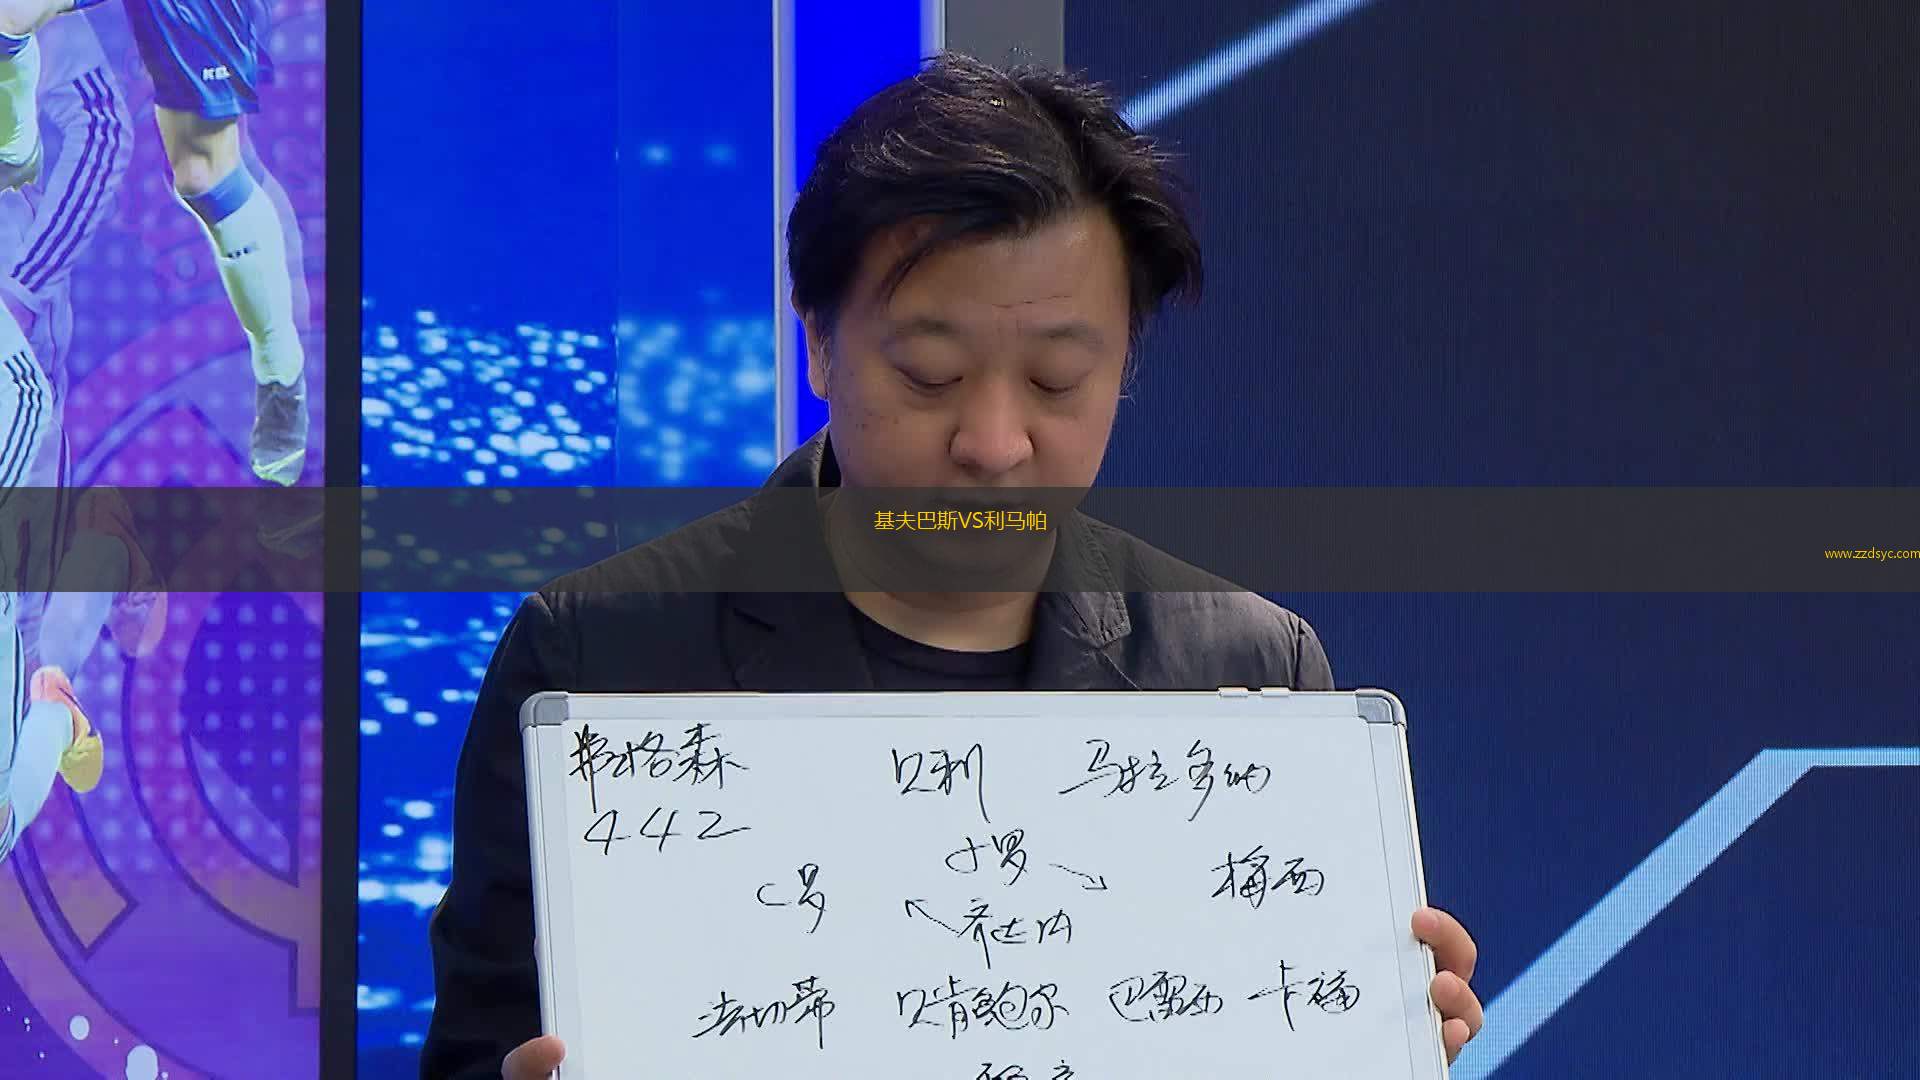 基夫巴斯VS利马帕
www.zzdsyc.com
弗格森 贝利 马拉多纳
442
小罗
C罗 梅西
齐达内
法切蒂 贝肯鲍尔 巴雷西 卡福